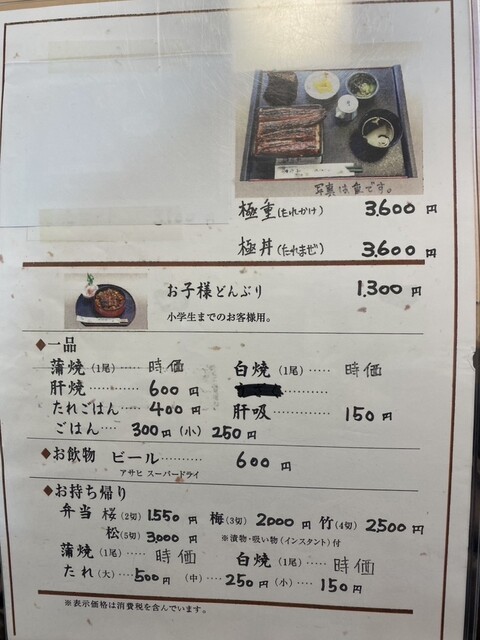 写真は重です。
極重(たれかけ) 3.600円
極丼(たれまぜ) 3.600円
お子様どんぶり 1.300円
小学生までのお客様用。
◆一品
蒲焼(1尾)…… 時価 白焼(1尾)…… 時価
肝焼…… 600円
たれごはん…… 400円 肝吸 150円
ごはん… 300円(小) 250円
◆お飲物 ビール……… 600円
アサヒ スーパードライ
◆お持ち帰り
弁当 桜(2切) 1.550円 梅(3切) 2000円 竹(4切) 2,500円
松(5切) 3,000円 ※漬物・吸い物(インスタント)付
蒲焼(1尾)…… 時価 白焼(1尾)…… 時価
たれ(大)… 500円 (中)… 250円(小)… 150円
※表示価格は消費税を含んでいます。